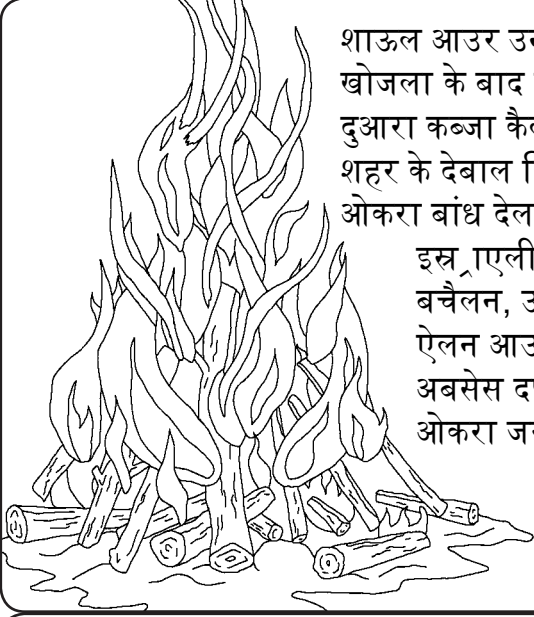 शाऊल आउर
खोजला के बाद
दुआरा कब्जा
शहर के देबाल
ओकरा बांध
इस्राएली
बचैलन,
ऐलन
अबसेस
ओकरा